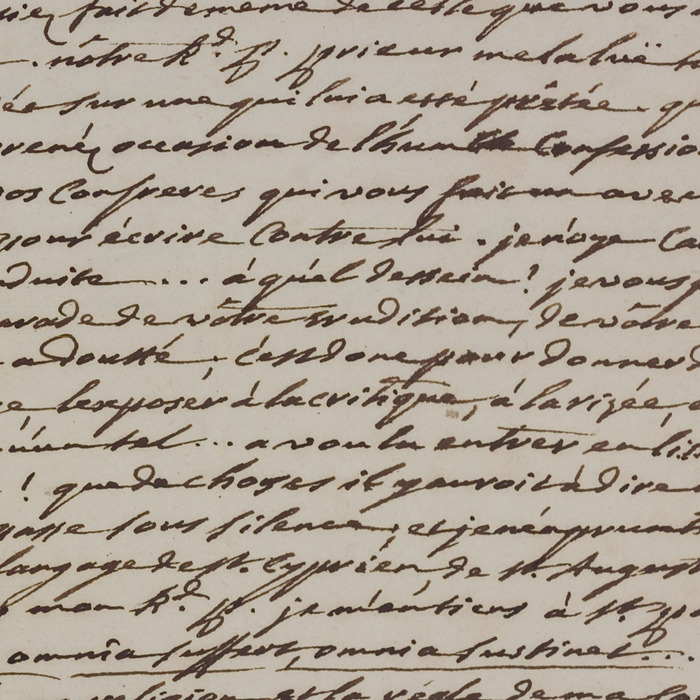 fait de meme de celle que vous
. nôtre R.d p. prieur me l'a luë
sur une qui lui a esté prêtée. q
prenéz occasion de l'humble Confessio
vos Confreres qui vous font un aver
pour écrire Contre lui. je n'oze Ca
duite ... à quél dessein? je vous p
parade de vôtre érudition, de vôtre
a doutté. c'est donc pour donner d
l'exposér à la critique, à la rizée,
un tel ... a voulu entrer en li
! que de choses il y auroit à dire
passe sous silence, et je n'emprunt
langage de st. Cyprien, de st. August
mon R.d p. je m'en tiens à st. p
omnia suffert, omnia sustinet...
religion est la régle de ma